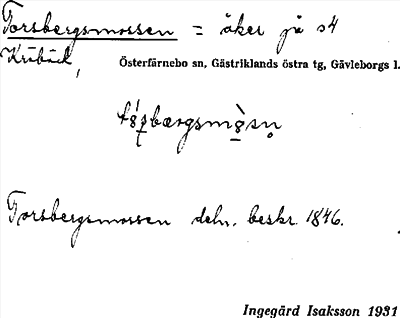 Torsbergsmossen = åker på s4
Kråbäck,
Österfärnebo sn, Gästriklands östra tg, Gävleborgs l.
Torsbergsmossen deln. beskr. 1846.
Ingegärd Isaksson 1931